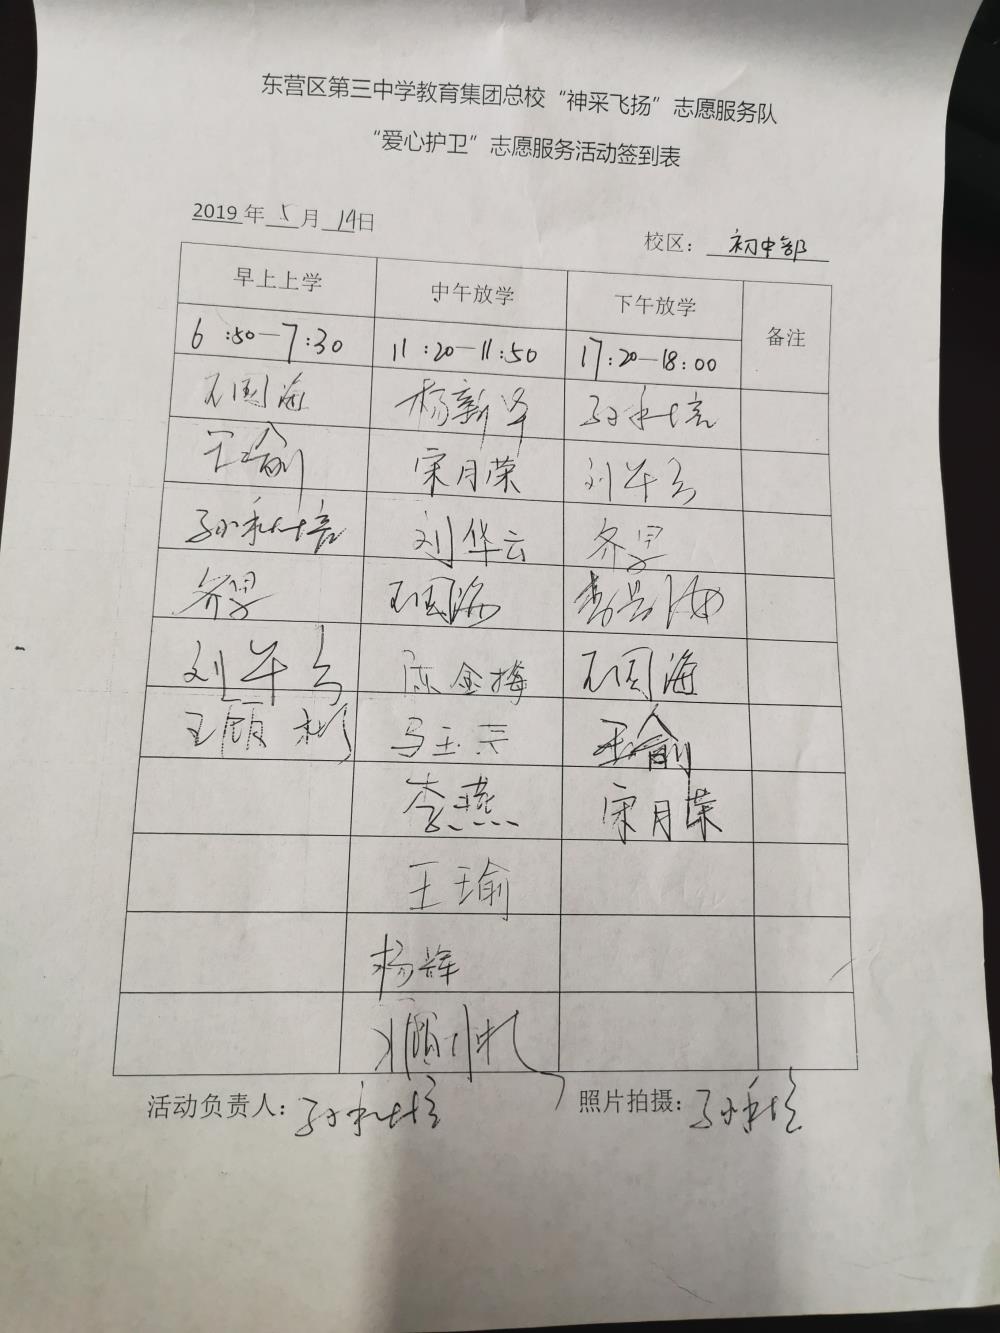 东营区第三中学教育集团总校“神采飞扬”志愿服务队
“爱心护卫”志愿服务活动签到表
2019年5月14日
校区：初中部
早上上学 中午放学 下午放学 备注
6:50—7:30 11:20—11:50 17:20—18:00
石国海 杨新 孙秋培
王瑜 宋月荣 刘华云
孙秋培 刘华云 齐昊
齐昊 石国海 海
刘华云 陈金梅 石国海
王颀彬 马玉 王瑜
李燕 宋月荣
王瑜
杨辉
活动负责人：孙秋培 照片拍摄：孙秋培